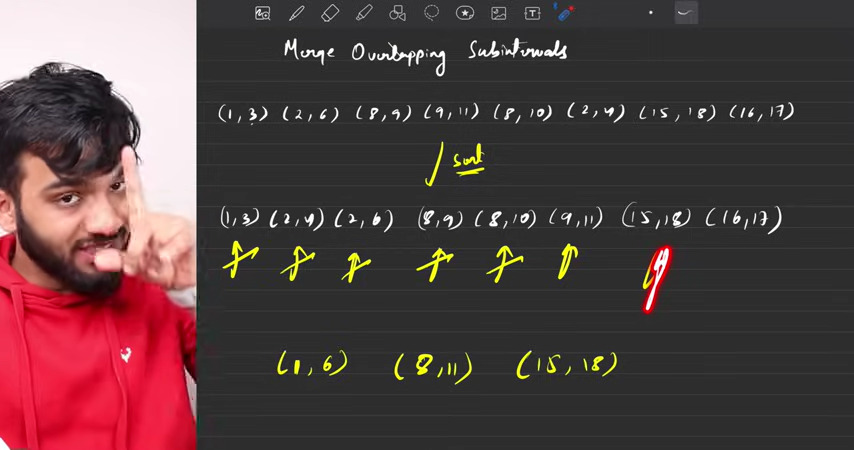 Merge Overlapping Subintervals
(1,3) (2,6) (8,9) (9,11) (8,10) (2,4) (15,18) (16,17)
sort
(1,3) (2,4) (2,6) (8,9) (8,10) (9,11) (15,18) (16,17)
(1,6) (8,11) (15,18)